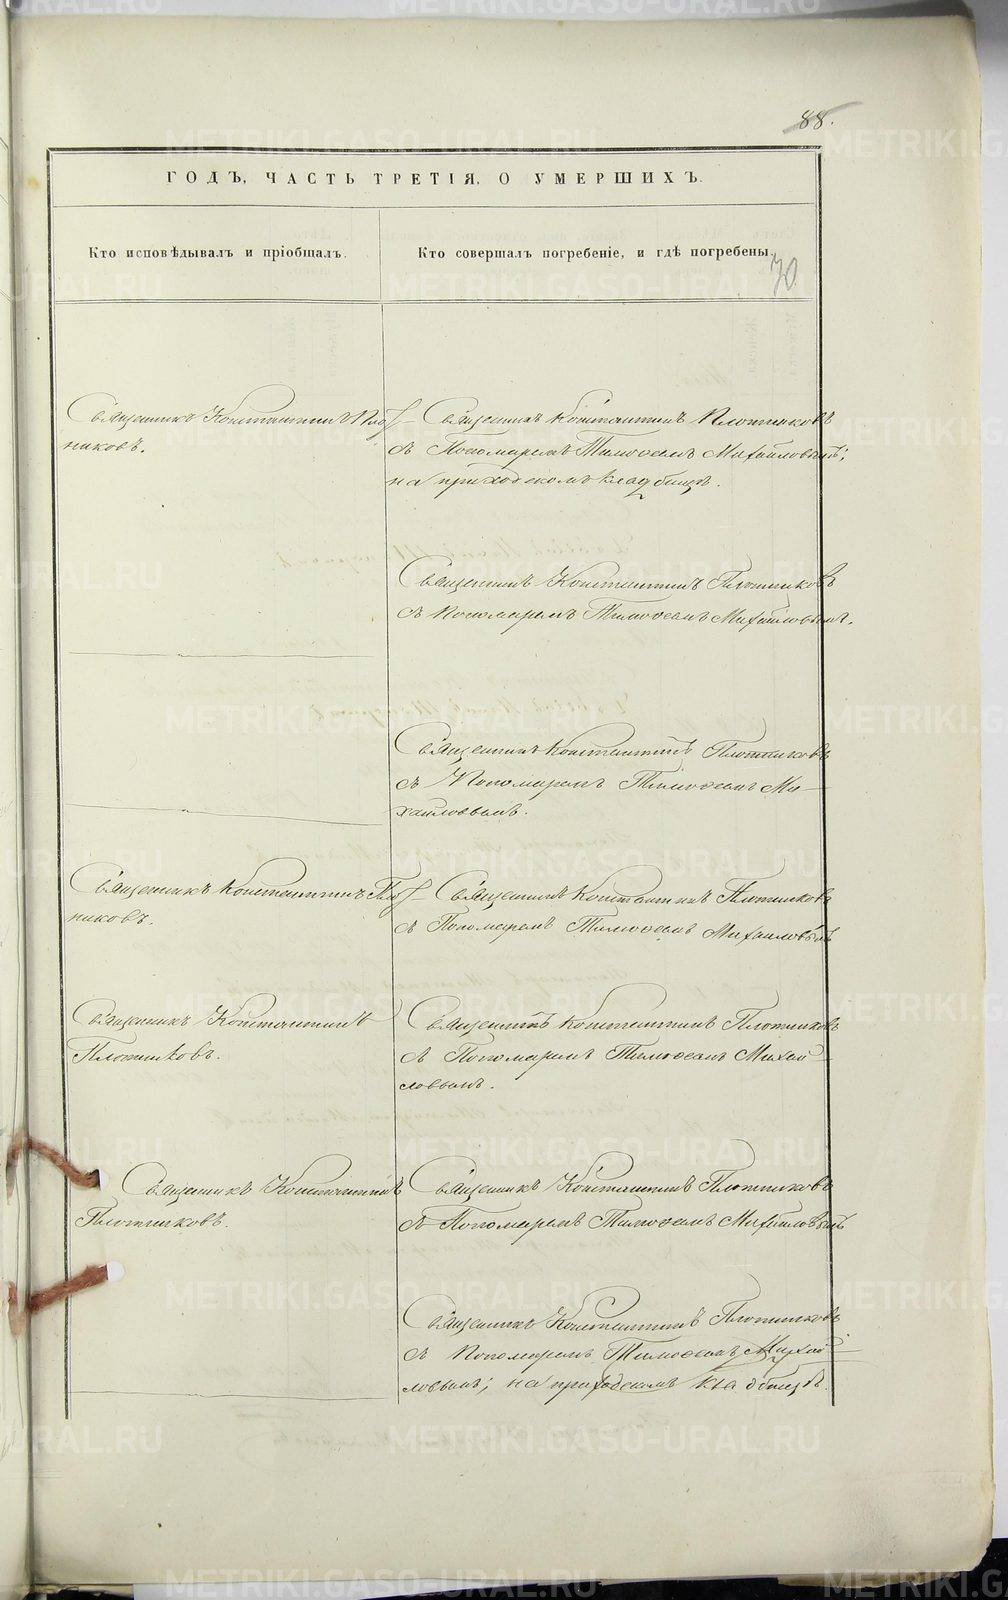 88.
ГОДЪ, ЧАСТЬ ТРЕТІЯ, О УМЕРШИХЪ.
Кто исповѣдывалъ и пріобщалъ.
Кто совершалъ погребеніе, и гдѣ погребены.
70
Священникъ Константинъ Плот
никовъ.
Священникъ Константинъ Плотниковъ
съ Пономаремъ Тимофеемъ Михайловымъ;
на приходскомъ кладбищѣ.
Священникъ Константинъ Плотниковъ
съ Пономаремъ Тимофеемъ Михайловымъ.
Священникъ Константинъ Плотниковъ
съ Пономаремъ Тимофеемъ Ми-
хайловымъ.
Священникъ Константинъ Плот
никовъ.
Священникъ Константинъ Плотниковъ
съ Пономаремъ Тимофеемъ Михайловымъ
Священникъ Константинъ
Плотниковъ.
Священникъ Константинъ Плотниковъ
съ Пономаремъ Тимофеемъ Михай-
ловымъ.
Священникъ Константинъ
Плотниковъ.
Священникъ Константинъ Плотниковъ
съ Пономаремъ Тимофеемъ Михайловымъ
Священникъ Константинъ Плотниковъ
съ Пономаремъ Тимофеемъ Михай-
ловымъ; на приходскомъ кладбищѣ.
METRIKI.GASO-URAL.RU